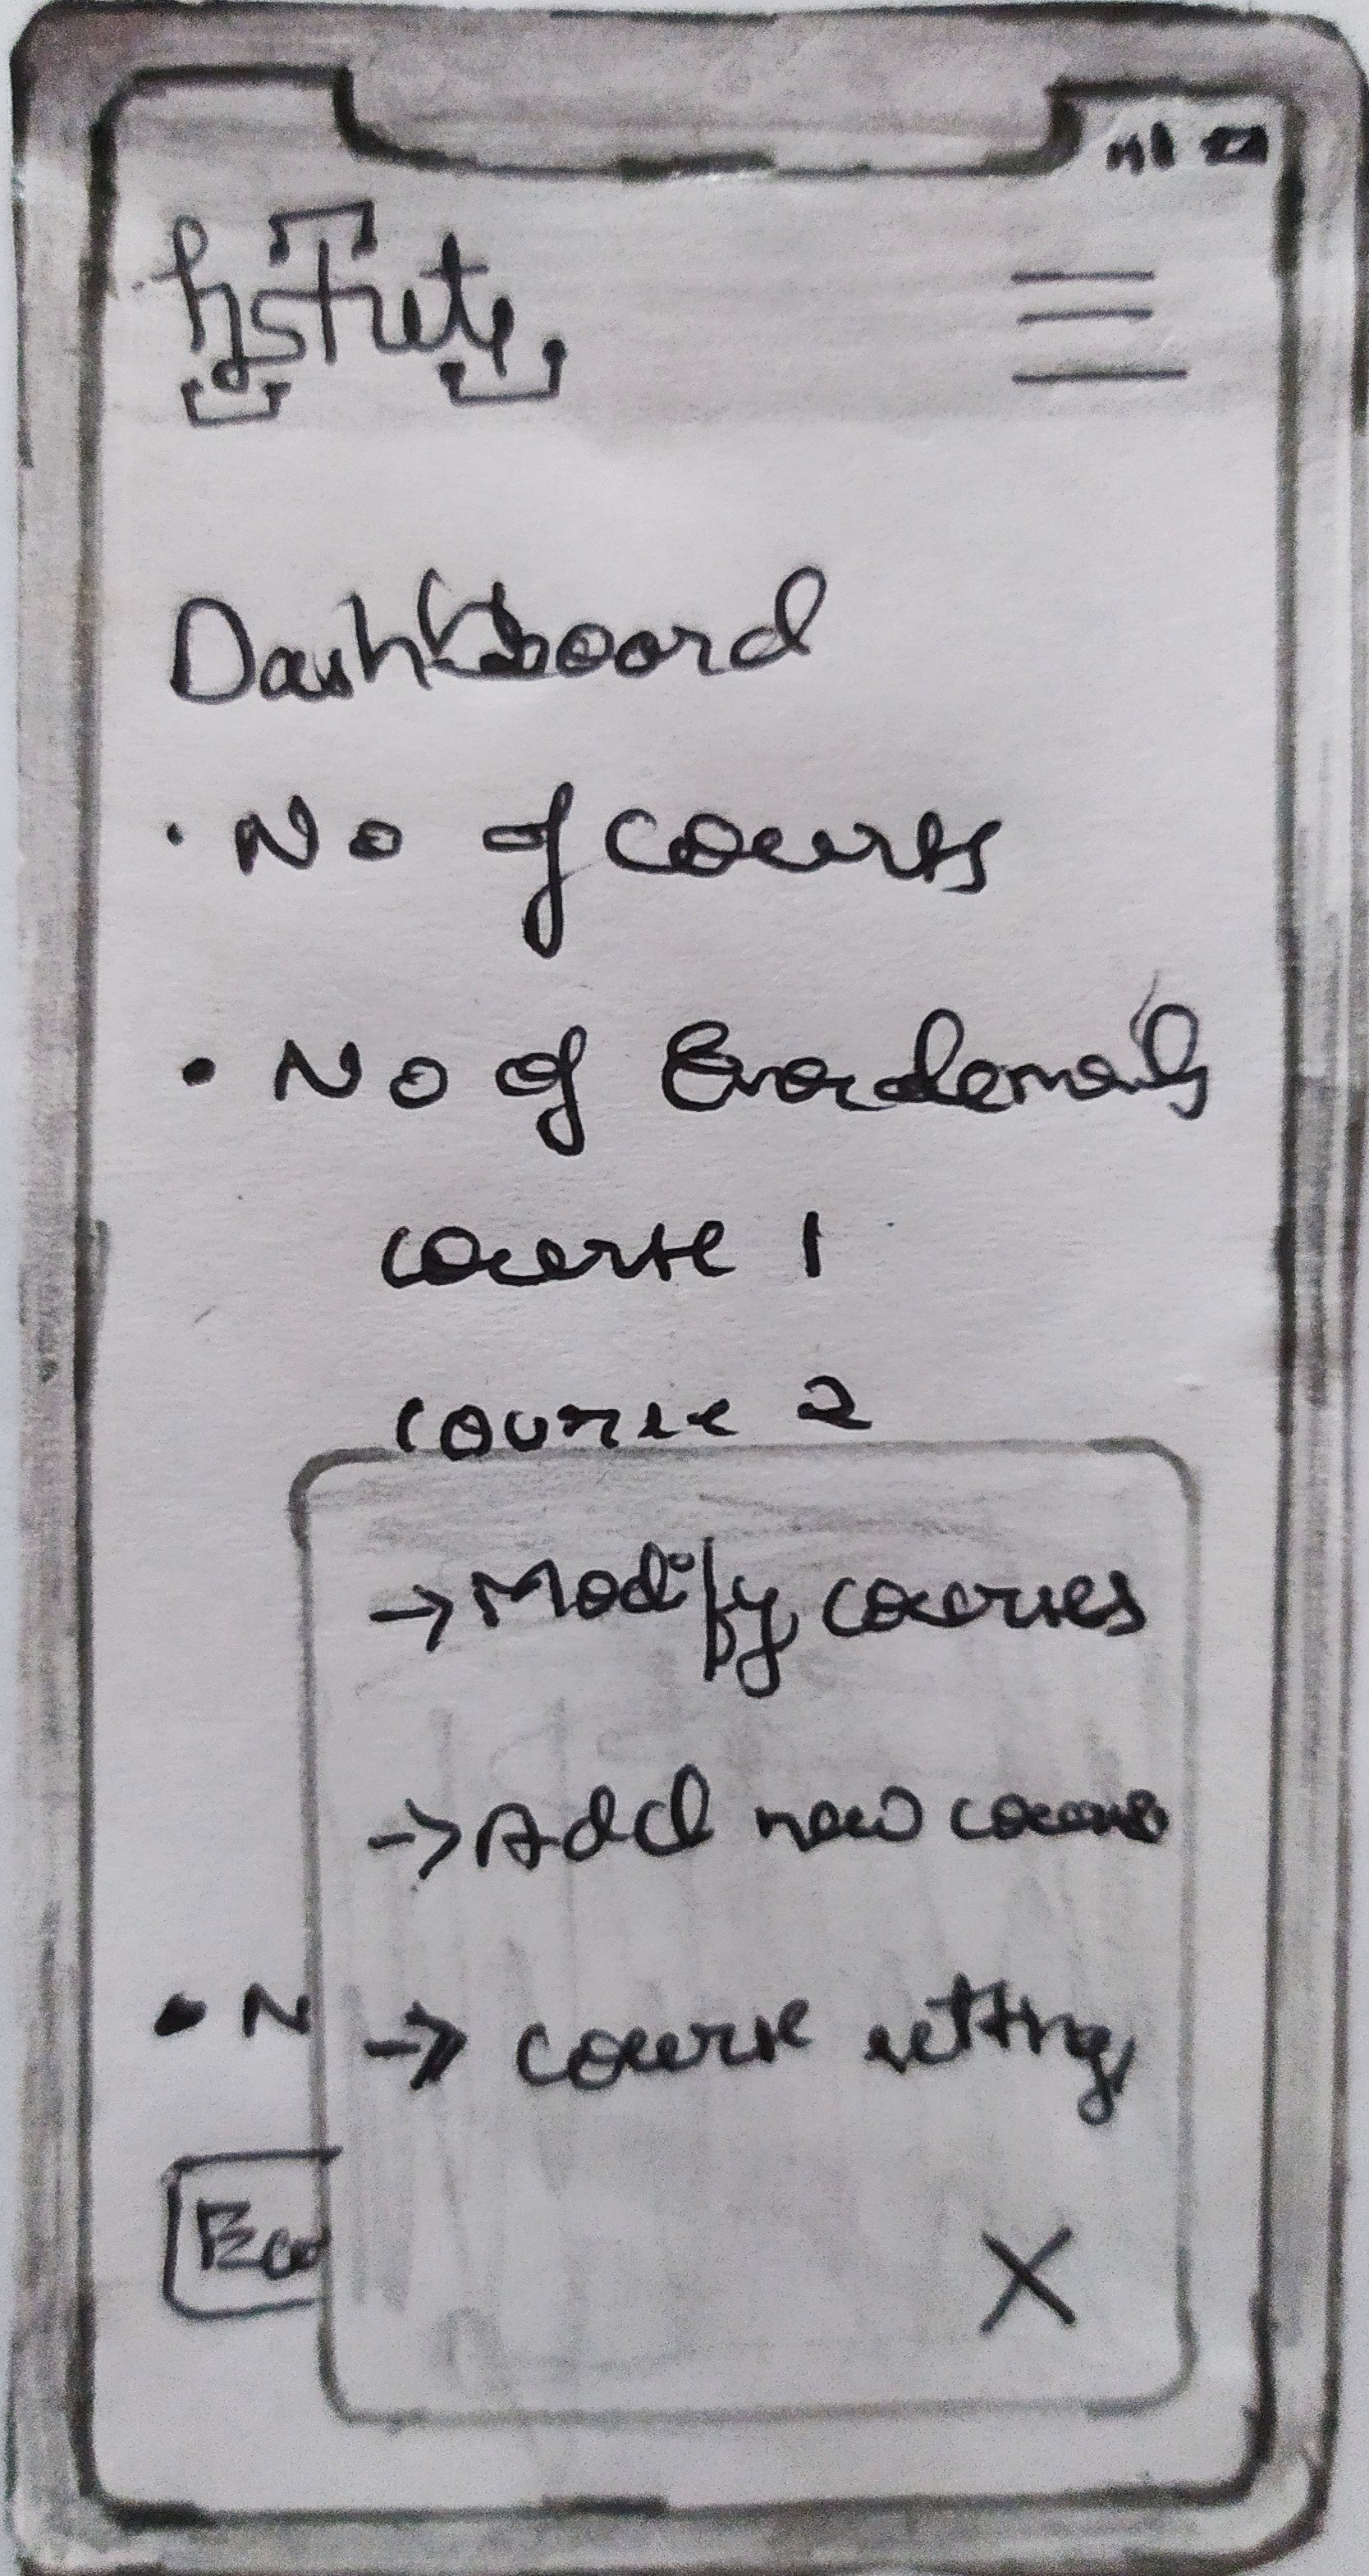 hstute
Dashboard
• No of courses
• No of
course 1
course 2
→ Modify courses
→ Add new course
• N
→ course setting